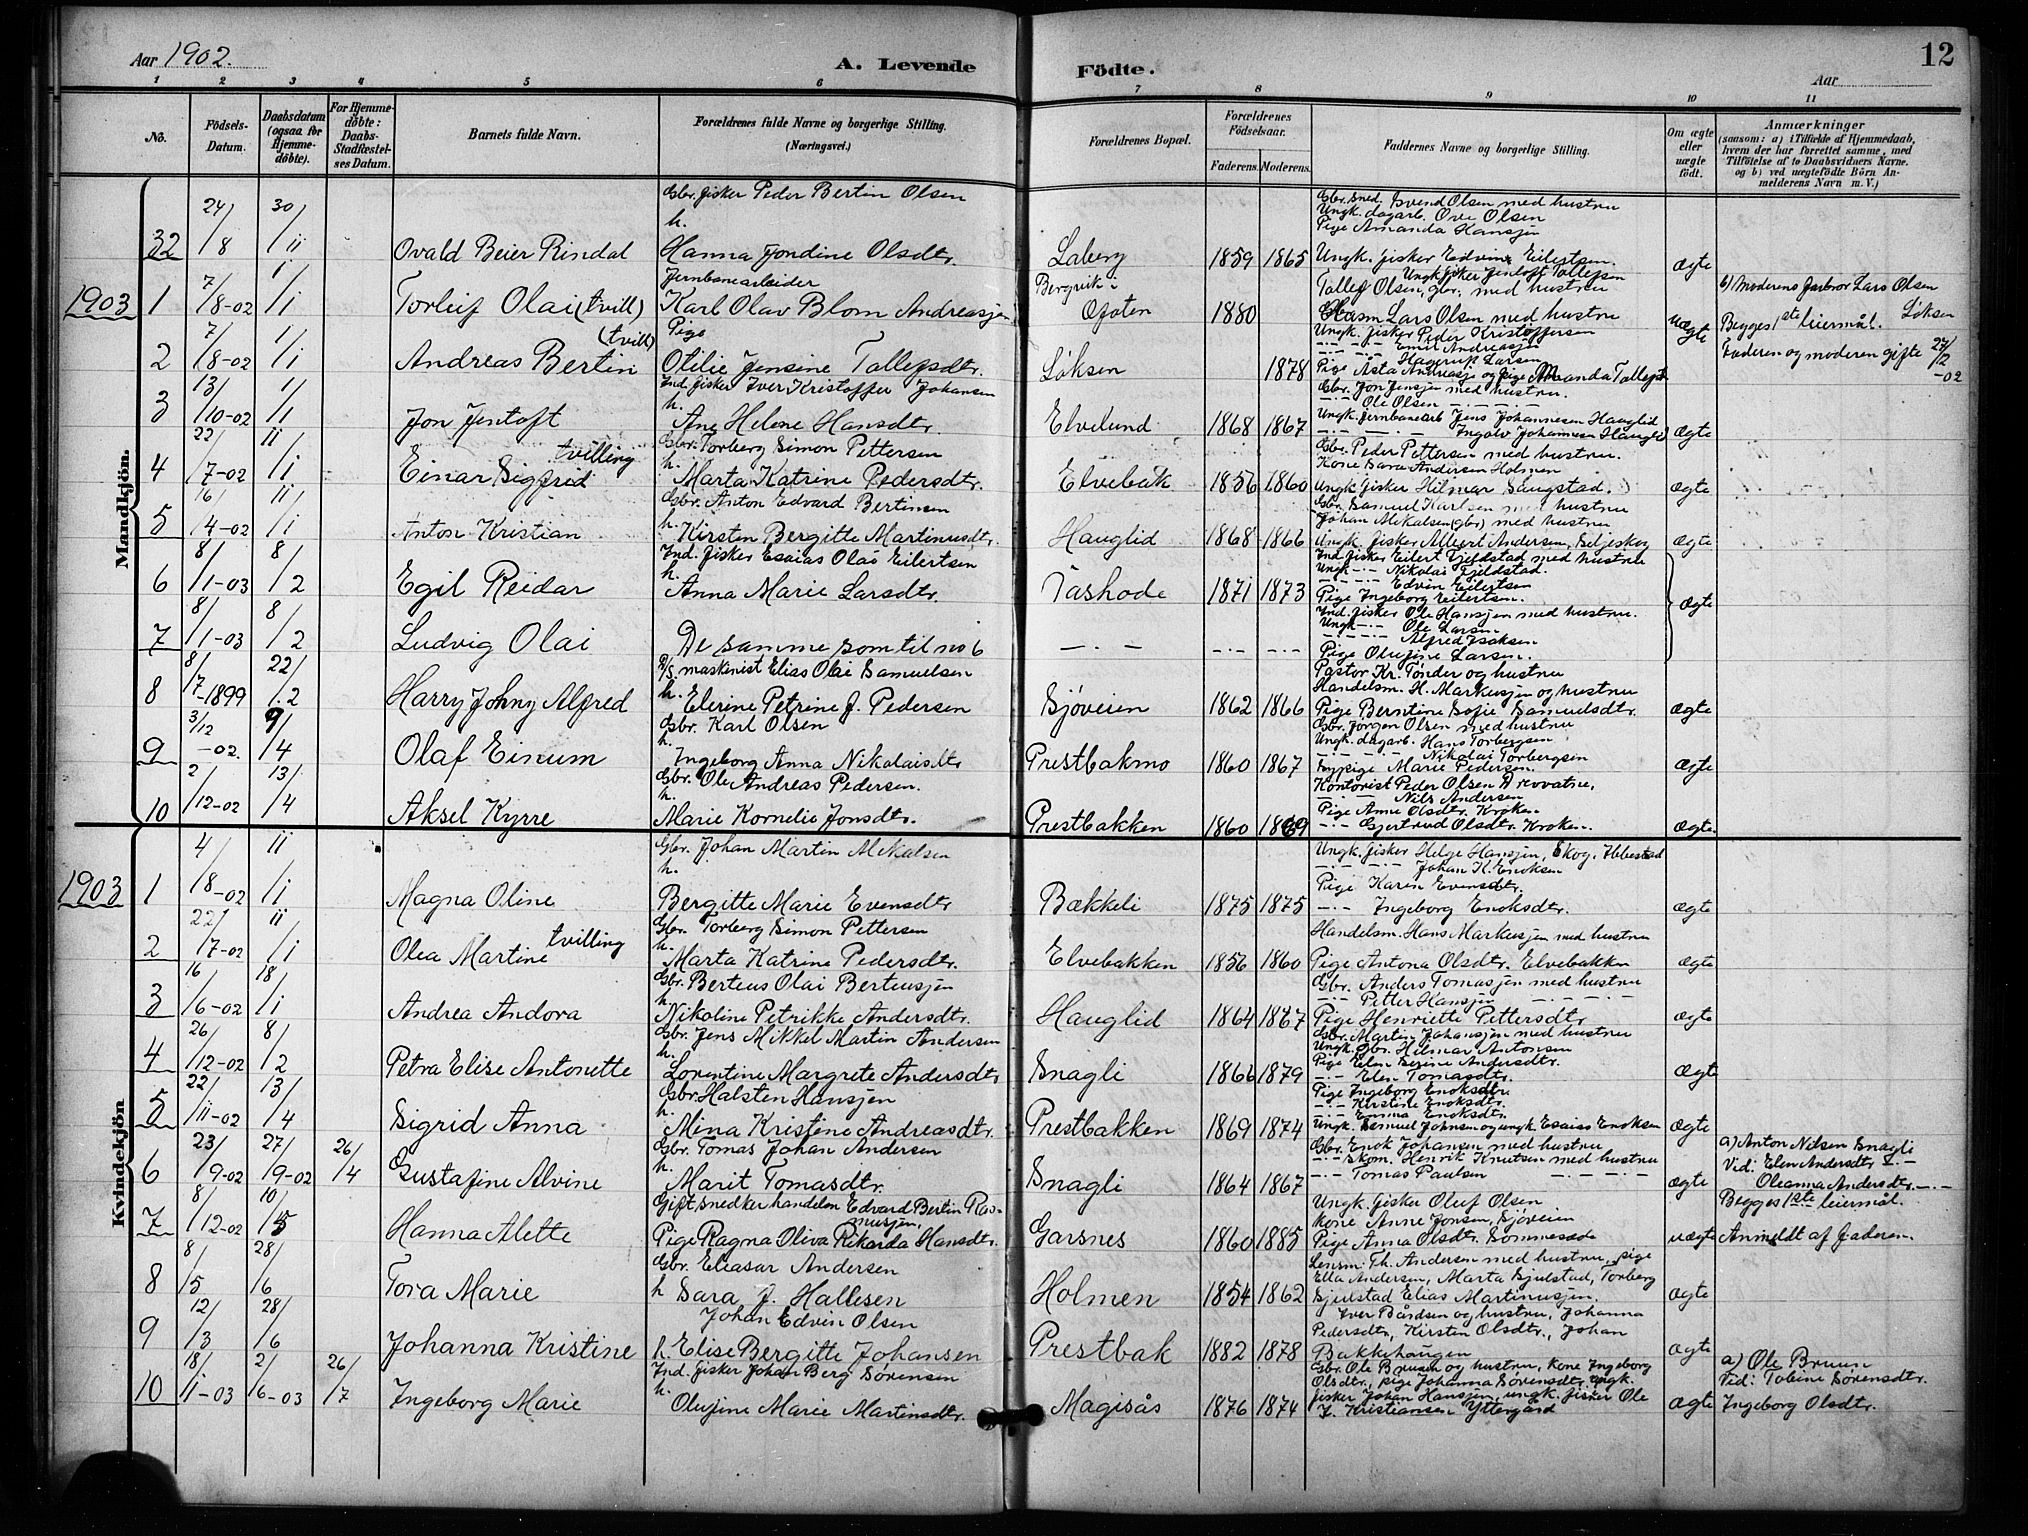 Aar 1902.
A. Levende Födte.
12
Aar
1 2 3 4 5 6 7 8 9 10 11
No.
Födsels-Datum.
Daabsdatum (ogsaa för Hjemme-döbte).
For Hjemme-döbte: Daabs-Stadfæstel-ses Datum.
Barnets fulde Navn.
Forældrenes fulde Navne og borgerlige Stilling. (Næringsvei.)
Forældrenes Bopæl.
Forældrenes Födselsaar.
Faderens. Moderens.
Faddernes Navne og borgerlige Stilling.
Om ægte eller uægte födt.
Anmærkninger
(saasom: a) i Tilfælde af Hjemmedaab, hvem der har forrettet samme, med Tilföielse af to Daabsvidners Navne. og b) ved uægtefödte Börn An-melderens Navn m. V.)
Mandkjön.
Gbr. fisker Peder Bertin Olsen
Gbr. Sned. Svend Olsen med hustru
Ungk. dagarb. Ove Olsen
Pige Amanda Hansen
32 24/8 30/11 Ovald Beier Rindal h. Hanna Jondine Olsdtr. Laberg 1859 1865 Ungk. fisker Edvin Eilertsen. ægte
Jernbanearbeider
Ungk. fisker Jentoft Tollefsen
Tollef Olsen, gbr. med hustru
1903 1 7/8-02 1/1 Torleif Olai (tvill) Karl Olav Blom Andreasen Bergvik - Ofoten 1880 Lars Olsen med hustru uægte
b) Moderens farbror Lars Olsen Løksen
Begges 1ste leiermål.
Ungk. fisker Peder Kristoffersen
-·- -·- Emil Andreasen
-·- -·- Hagerup Larsen
2 7/8-02 1/1 Andreas Bertin (tvill) Pige Otilie Jensine Tollefsdtr. Løksen 1878 Pige Asta Andreasen og pige Amanda Tollefsdtr
Faderen og moderen gifte 27/12-02
Ind. fisker Iver Kristoffer Johansen
Gbr. Jon Jensen med hustru.
-·- Ole Olsen -·-
Ungk. jernbanearb Jens Johannesen Hauglid
3 13/10-02 1/1 Jon Jentoft h. Ane Helene Hansdtr. Elvelund 1868 1867 -·- -·- Ingolv Johannesen Hauglid ægte
Gbr. Torberg Simon Pettersen
Gbr. Peder Pettersen med hustru.
Kone Sara Andersen Holmen
4 22/7-02 11/1 Einar Sigfrid tvilling h. Marta Katrine Pedersdtr. Elvebak 1856 1860 Ungk. fisker Hilmar Saugstad. ægte
Gbr. Anton Edvard Bertinsen
Gbr. Samuel Karlsen med hustru
Johan Mikalsen (gbr) med hustru
5 16/4-02 11/1 Anton Kristian h. Kirsten Bergitte Martinusdtr. Hauglid 1868 1866 Ungk. fisker Albert Andersen, Seljeskog ægte
Ind. fisker Esaias Olai Eilertsen
Ind. fisker Eilert Fjeldstad med hustru
Ungk. -·- Nikolai Fjeldstad.
-·- -·- Edvin Eilertsen
6 8/1-03 8/2 Egil Reidar h. Anna Marie Larsdtr. 1871 1873 Pige Ingeborg Eilertsen. ægte
Ind. fisker Ole Hansen med hustru.
Ungk. -·- Ole Larsen
-·- -·- Alfred Isaksen
7 8/1-03 8/2 Ludvig Olai De samme som til no 6 -·- -·- -·- Pige Olufine Larsen.
D/S maskinist Elias Olai Samuelsen
Pastor Kr. Tønder og hustru
Handelsm. H. Markusen og hustru
8 8/7-1899 22/2 Harry Johny Alfred h. Elerine Petrine J. Pedersen Sjøveien 1862 1866 Pige Berntine Sofie Samuelsdtr. ægte
Gbr. Karl Olsen
Gbr. Jørgen Olsen med hustru
Ungk. dagarb. Hans Torbergsen
-·- -·- Nikolai Torbergsen
9 3/12-02. 9/4 Olaf Einum h. Ingeborg Anna Nikolaisdtr Prestbakmo 1860 1867 pige Marie Pedersen. ægte
Gbr. Ole Andreas Pedersen.
Kontorist Peder Olsen Drovatne,
-·- Nils Andersen
Pige Anne Olsdtr. Kroken
10 2/12-02 13/4 Aksel Kyrre h. Marie Kornelie Jonsdtr. Prestbakken 1860 1869 -·- Gjertrud Olsdtr. Kroken. ægte.
Kvindekjön
Gbr. Johan Martin Mikalsen
Ungk. fisker Helge Hansen, Skog. Ibbestad
-·- -·- Johan K. Enoksen
Pige Karen Evensdtr.
1903 1 4/8-02 11/1 Magna Oline h. Bergitte Marie Evensdtr Bækkeli 1875 1875 -·- Ingeborg Enoksdtr. ægte
Gbr. Torberg Simon Pettersen
Handelsm. Hans Markusen med hustru
2 22/7-02 11/1 Olea Martine tvilling h. Marta Katrine Pedersdtr. Elvebakken 1856 1860 Pige Antona Olsdtr. Elvebakken ægte
Gbr. Berteus Olai Berteusen
Gbr. Anders Tomasen med hustru
-·- Petter Hansen -·- -·-
3 16/6-02 18/1 Andrea Andora h. Nikoline Petrikke Andersdtr. Hauglid 1864 1867 Pige Henriette Pettersdtr ægte
Gbr. Jens Mikkel Martin Andersen
Gbr. Martin Johansen med hustru
Ungk. Gbr. Hilmar Antonsen
Pige Elen Andersdtr.
4 26/12-02 8/2 Petra Elise Antonette h. Lorentine Margrete Andersdtr Snagli 1866 1879 -·- Elen Tomasdtr. ægte
Gbr. Halsten Hansen
Pige Ingeborg Enoksdtr.
-·- Kirstine Enoksdtr.
-·- Emma Enoksdtr.
5 22/11-02 13/4 Sigrid Anna h. Mina Kristine Andreasdtr. Prestbakken 1869 1874 Ungk. Samuel Johnsen og ungk. Esaias Enoksen ægte
Gbr. Tomas Johan Andersen
Gbr. Enok Johansen med hustru
-·- Skom. Henrik Knutsen med hustru
6 23/9-02 27/9-02 26/4 Gustafine Alvine h. Marit Tomasdtr. Snagli 1864 1867 -·- Tomas Paulsen -·- -·- ægte
a) Anton Nilsen Snagli
Vid: Elen Andersdtr -·-
Oleanna Andersdtr. -·-
Gift snedkerhandelen Edvard Bertin Rasmusen,
Ungk. fisker Oluf Olsen
Kone Anne Jonsen, Sjøveien
7 8/12-02 10/5 Hanna Alette Pige Ragna Oliva Rikarda Hansdtr. Garsnes 1860 1885 Pige Anna Olsdtr. Sommesæde uægte
Begges 1ste leiermål.
Anmeldt af faderen.
Gbr. Eliasar Andersen
Lensm. Th. Andersen med hustru, pige
Ella Andersen, Marta Gjulstad, Torberg
8 8/5 28/6 Tora Marie h Sara J. Hallesen Holmen 1854 1862 Gjulstad Elias Martinusen. ægte
Johan Edvin Olsen
Iver Bårdsen og hustru, Johanna
Pedersdtr, Kirsten Olsdtr., Johan
9 12/3 28/6 Johanna Kristine h. Elise Bergitte Johansen Prestbak 1882 1878 Bakkehaugen ægte
Ind. fisker Johan Berg Sørensen
Gbr. Ole Bruun og hustru, kone Ingeborg
Olsdtr., pige Johanna Sørensdtr. ungk.
fisker Johan Hansen, ungk. fisker Ole
10 18/11-03 2/6-03 26/7 Ingeborg Marie h. Olufine Marie Martinsdtr. Magisås 1876 1874 J. Kristiansen Yttergård ægte
a) Ole Bruun
Vid: Tobine Sørensdtr.
Ingeborg Olsdtr.